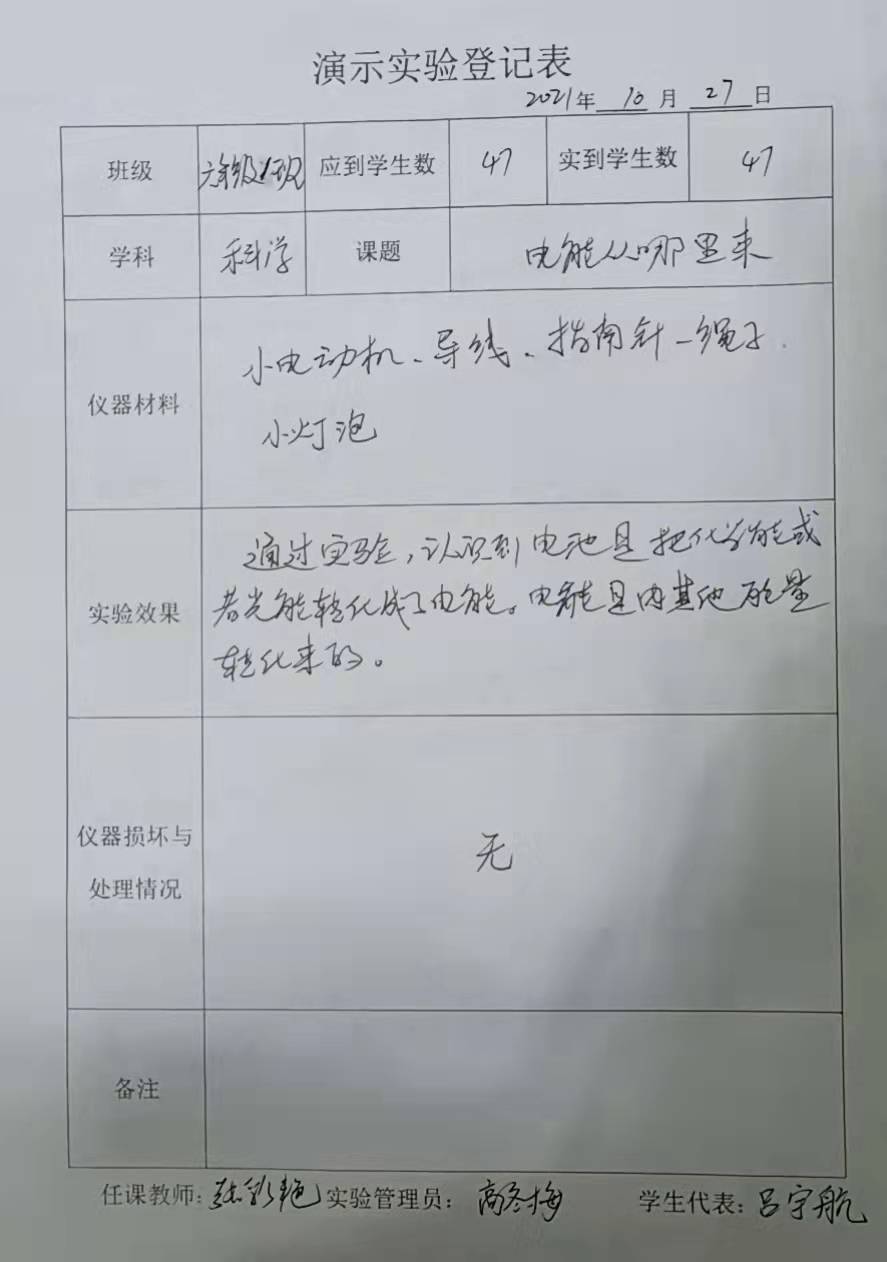 演示实验登记表
2021年 10 月 27 日
班级 六年级1班 应到学生数 47 实到学生数 47
学科 科学 课题 电能从哪里来
仪器材料
小电动机、导线、指南针、绳子、
小灯泡
实验效果
通过实验,认识到电池是把化学能或
者光能转化成了电能。电能是由其他能量
转化来的。
仪器损坏与
处理情况
无
备注
任课教师:张彩艳 实验管理员:高冬梅 学生代表:吕宇航